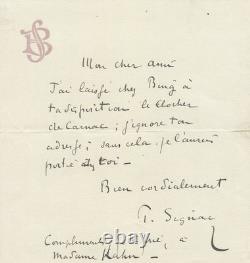 PS
Mon cher ami
J'ai laissé chez Bing à
ta disposition le Clocher
de Carnac ; j'ignore ton
adresse ; sans cela je l'aurais
porté chez toi -
Bien cordialement
P. Signac
Compliments à
Madame Kahn -